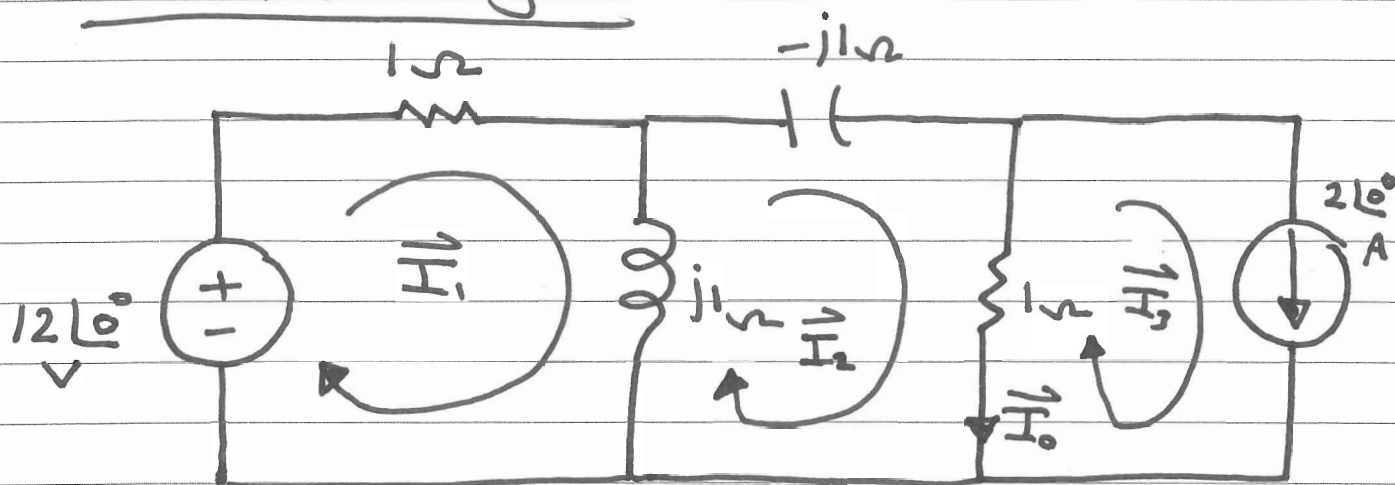 1Ω
-j1Ω
12∠0°
V
+
-
I⃗₁
j1Ω
I⃗₂
1Ω
I⃗₀
I⃗₃
2∠0°
A